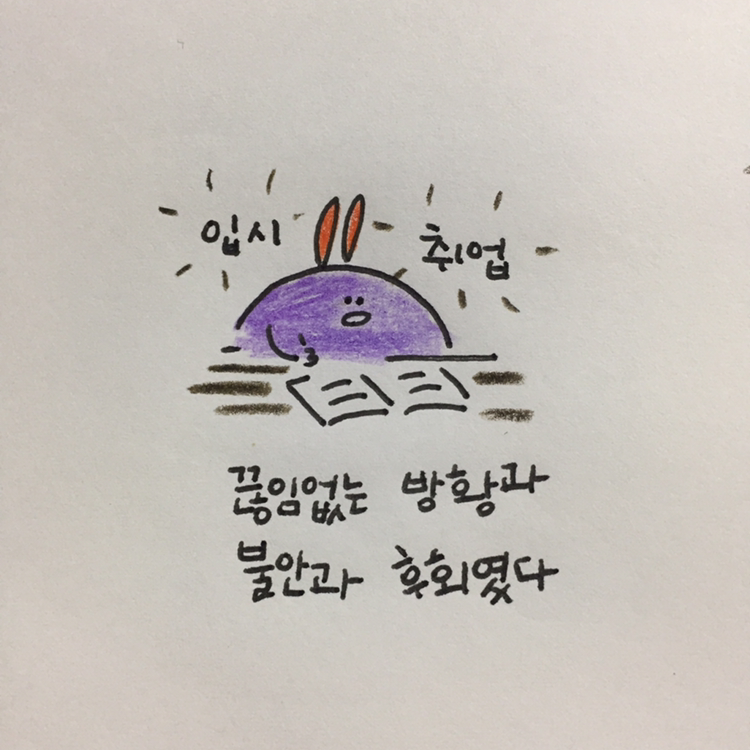 입시
취업
끊임없는 방황과
불안과 후회였다